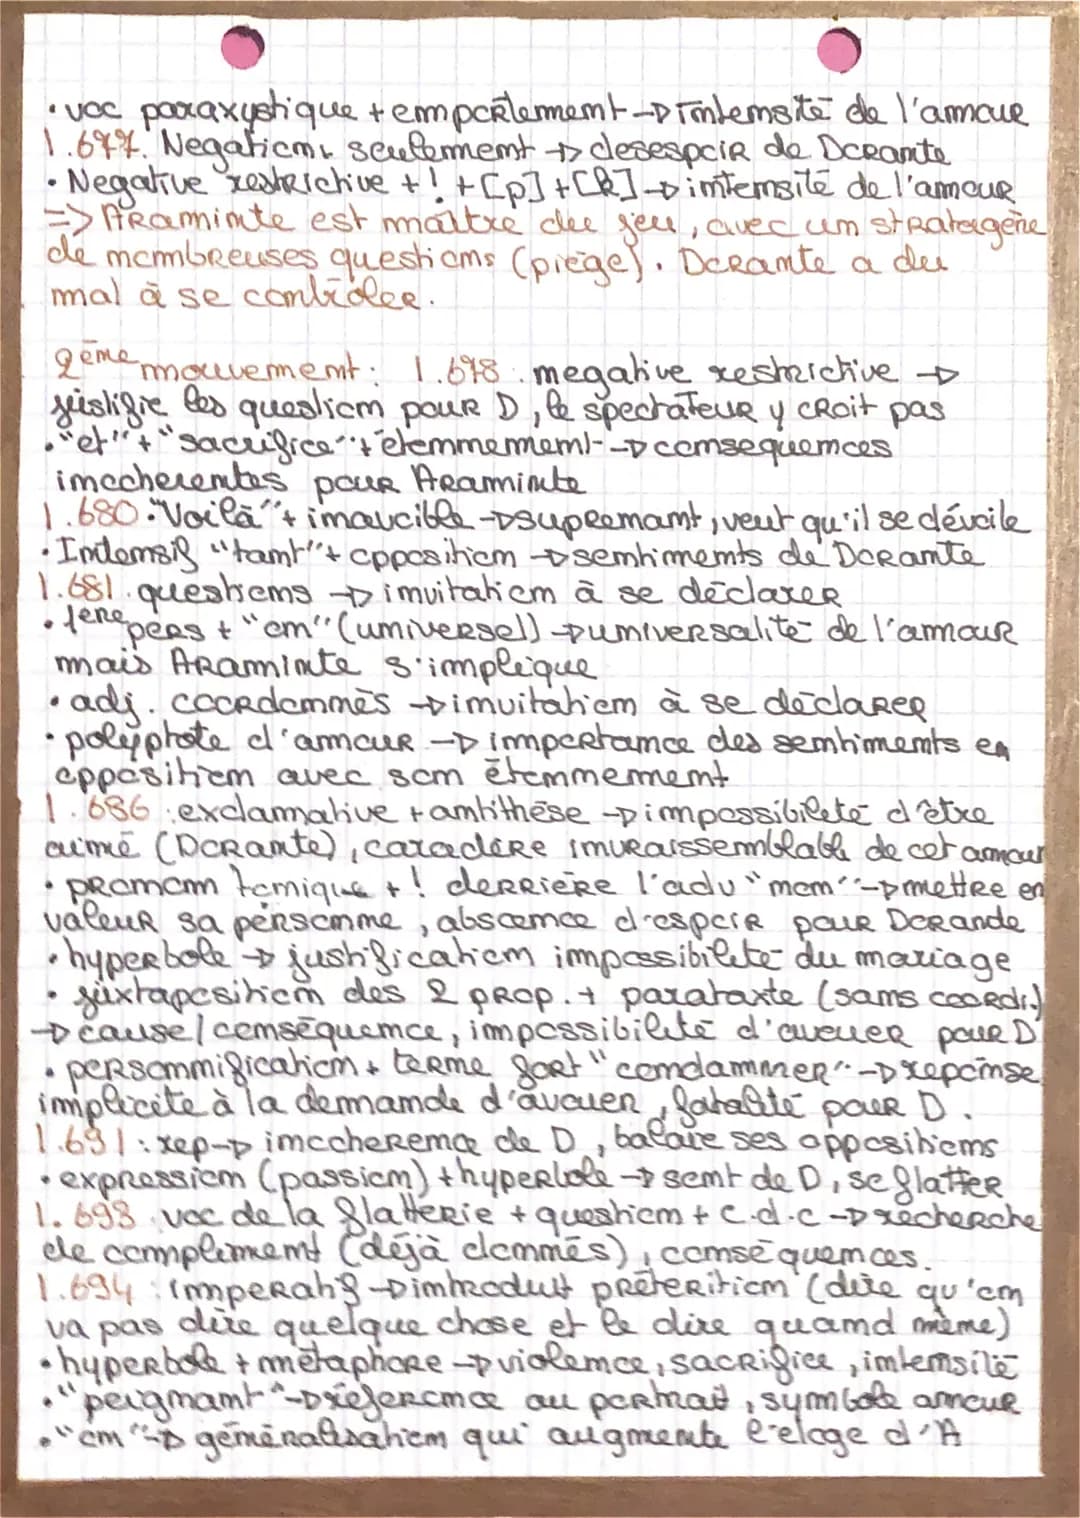 • voc paraxystique + emportement → intensité de l'amour
l.677. Negation, seulement → desespoir de Dorante
• Negative restrictive + ! + [p] + [k] → intensité de l'amour
=> Araminte est maître du jeu, avec un stratagène
de nombreuses questions (piège). Dorante a du
mal à se contrôler.
2ème mouvement : l.678 : negative restrictive →
justifie les question pour D, le spectateur y croit pas
• "et" + "sacrifice" + étonnement → consequences
incoherentes pour Araminte
l.680 : "Voilà" + inaucible → suprenant, veut qu'il se dévoile
• Intensif "tant" + opposition → sentiments de Dorante
l.681 . questions → invitation à se déclarer
• 1ère pers + "on" (universel) → universalité de l'amour
mais Araminte s'implique
• adj. coordonnés → invitation à se déclarer
• polyptote d'amour → importance des sentiments en
opposition avec son étonnement
l.686 : exclamative + antithèse → impossibilité d'être
aimé (Dorante), caractère invraissemblable de cet amour
• pronom tonique + ! derrière l'adv "mon" → mettre en
valeur sa personne, abscence d'espoir pour Dorande
• hyperbole → justification impossibilité du mariage
• juxtaposition des 2 prop. + parataxte (sans coordi.)
→ cause / conséquence, impossibilité d'avouer pour D
• personnification + terme fort "condamner" → reponse
implicite à la demande d'avouer, fatalité pour D.
l.691 : rep → incoherence de D, balaie ses oppositions
• expression (passion) + hyperbole → sent de D, se flatter
l.693 voc de la flatterie + question + c.d.c → recherche
de compliment (déjà donnés), conséquences.
l.694 : imperatif → introduit prétérition (dire qu'on
va pas dire quelque chose et le dire quand même)
• hyperbole + métaphore → violence, sacrifice, intensité
• "peignant" → réference au portrait, symbole amour
• "on" → généralisation qui augmente l'éloge d'A